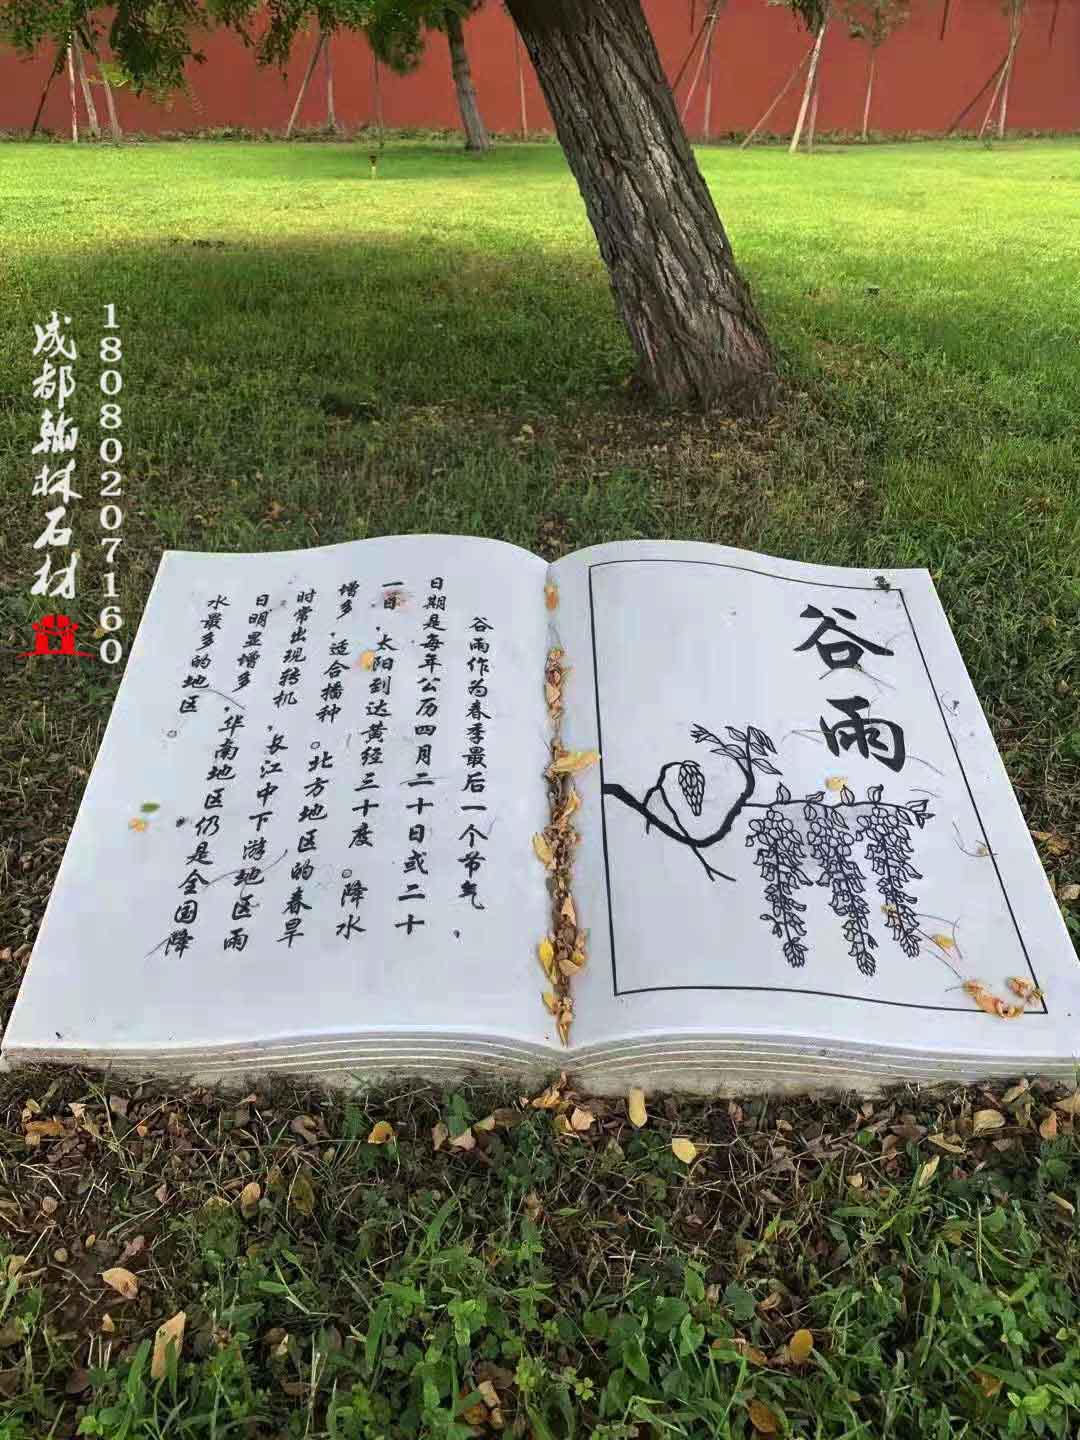 谷雨
谷雨作为春季最后一个节气，
日期是每年公历四月二十日或二十
一日，太阳到达黄经三十度。降水
增多，适合播种。北方地区的春旱
时常出现转机，长江中下游地区雨
日明显增多，华南地区仍是全国降
水最多的地区。
18080207160
成都翰林石材